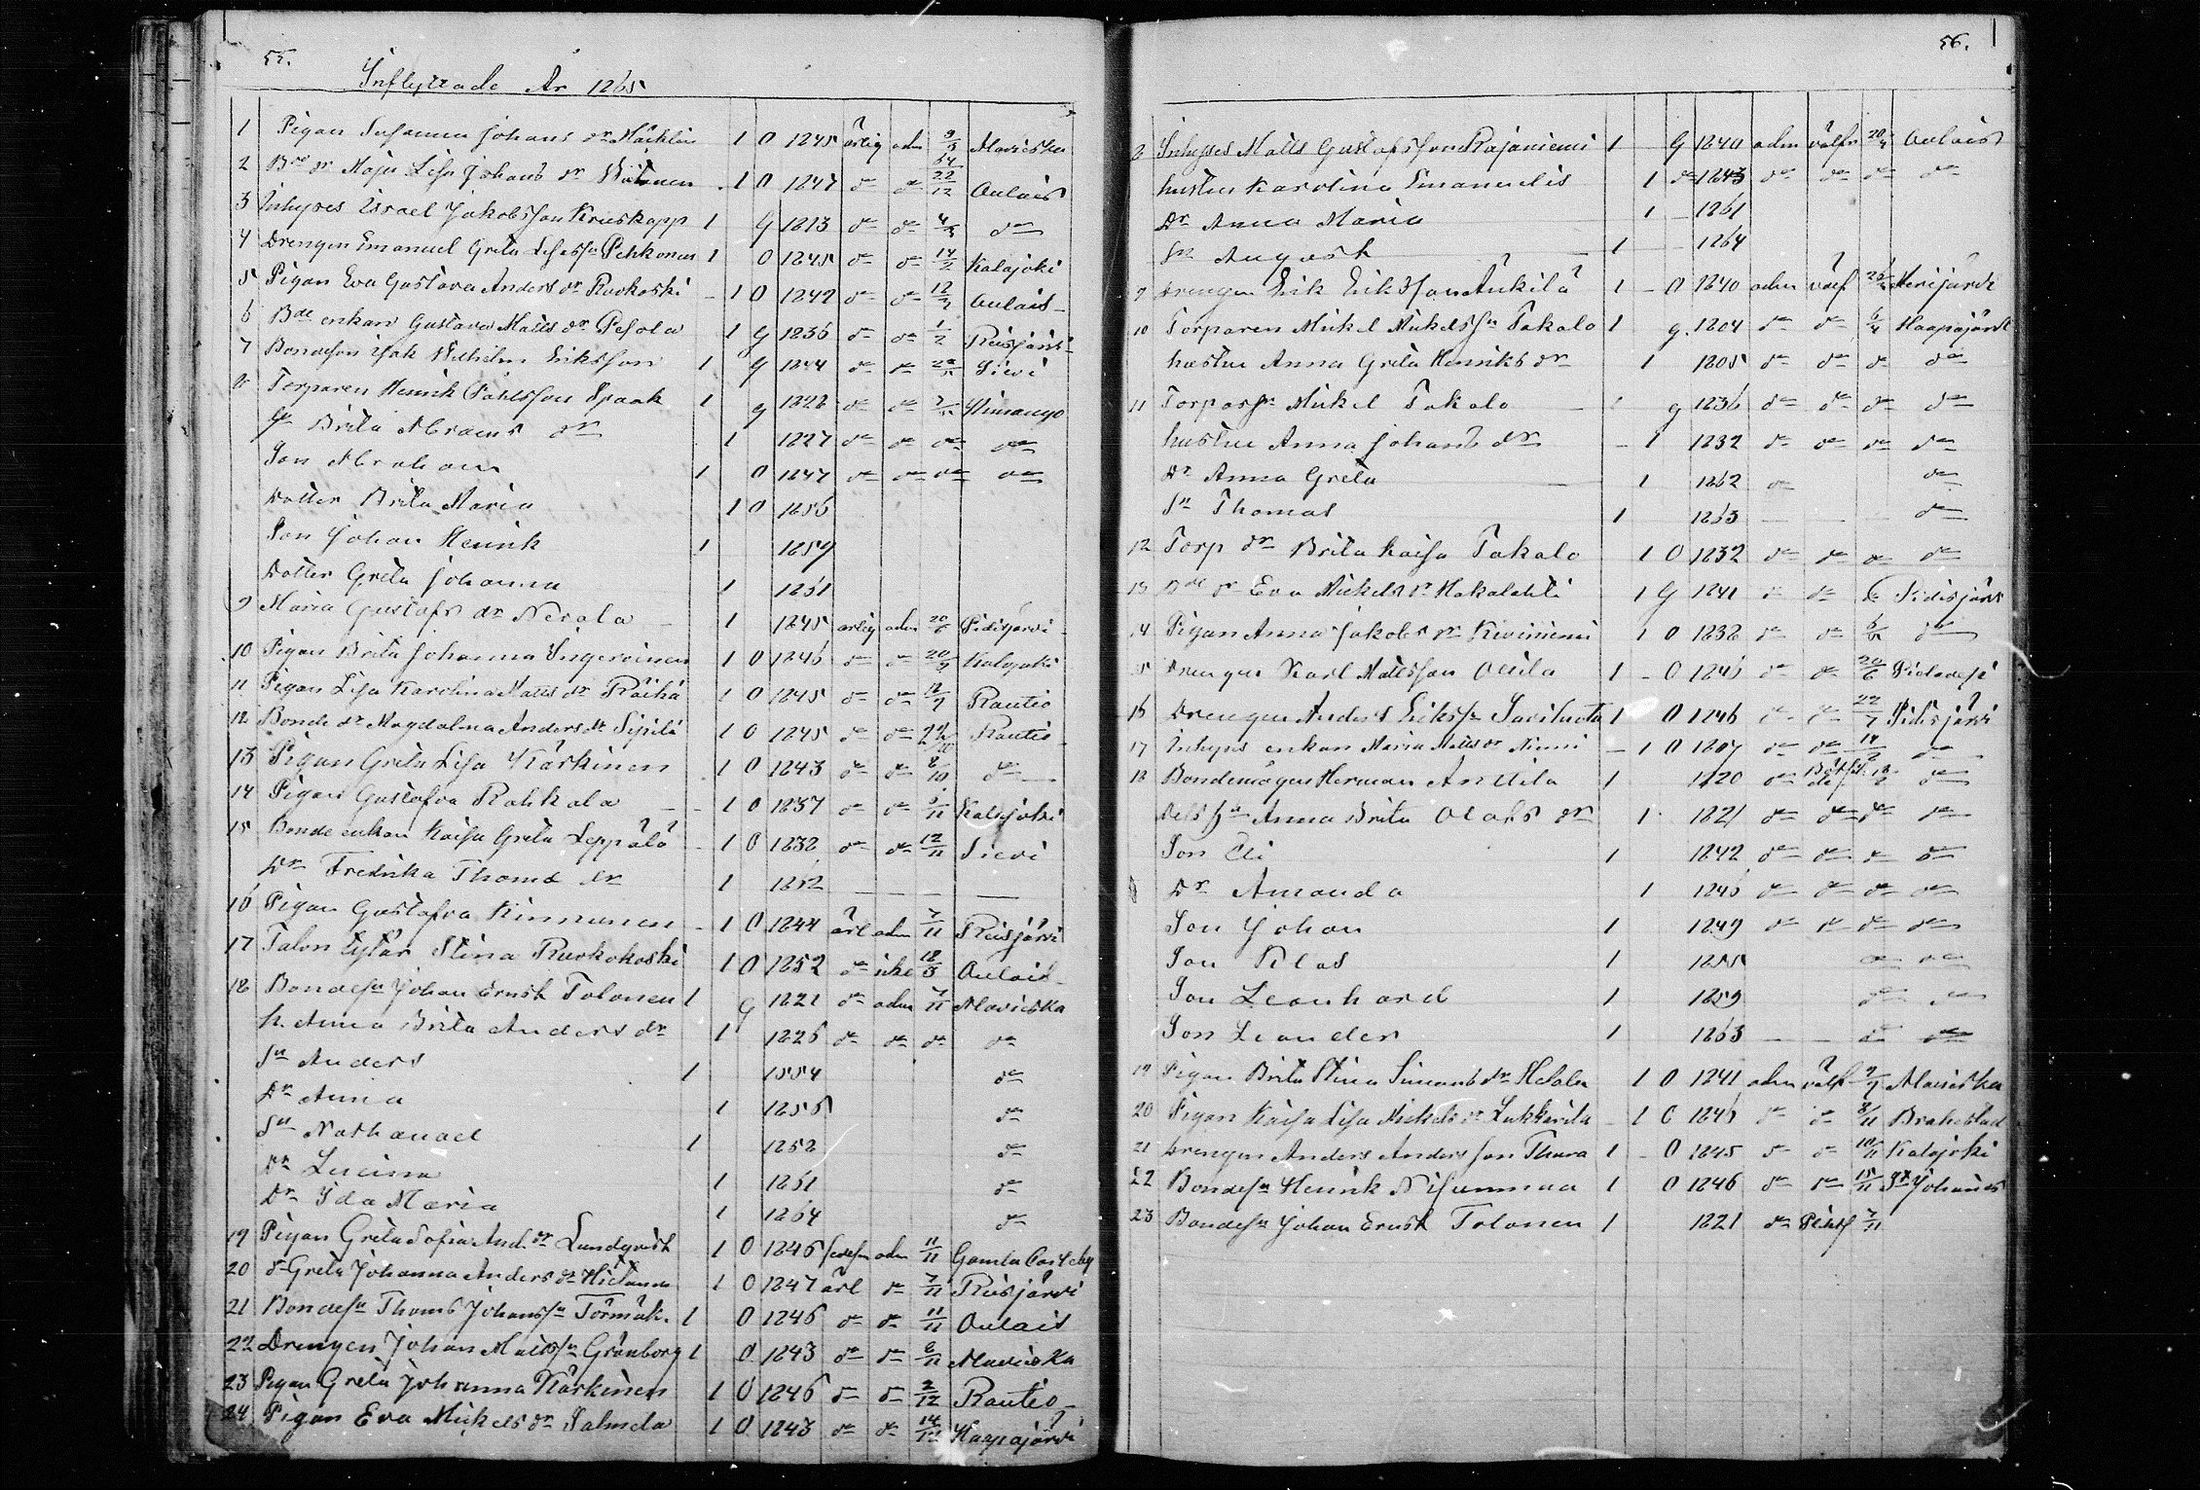 55.
Inflyttade År 1865
1 Pigan Susanna Johans dr Märklin 1 0 1845 ärlig adm 9/3 Alavieska
2 Bde dr Maja Lisa Johans dr 1 0 1847 do do 22/12 Oulais
3 Inhyses Israel Jakobsson Kruskopp 1 g 1813 do do 4/3 do
4 Drengen Emanuel Greta Lisasn Pehkonen 1 0 1845 do do 14/2 Kalajoki
5 Pigan Eva Gustava Anders dr Ruokoski 1 0 1842 do do 12/3 Oulais
6 Bde enkan Gustava Matts dr Pesola 1 g 1836 do do 1/2 Reisjärvi
7 Bondeson Isak Wilhelm Eriksson 1 g 1844 do do Sievi
8 Torparen Henrik Påhlsson Spaak 1 g 1828 do do Himango
Brita Abrams dr 1 1827 do do do do
Son Abraham 1 0 1847 do do do do
Dotter Brita Maria 1 0 1856
Son Johan Henrik 1 1859
Dotter Greta Johanna 1 1861
9 Maria Gustafs dr Nerala 1 1845 ärlig adm 20/6 Pidisjärvi
10 Pigan Brita Johanna Ingeroinen 1 0 1846 do do 20/9 Kalajoki
11 Pigan Lisa Karolina Matts dr Räihä 1 0 1845 do do 12/9 Rautio
12 Bonde dr Magdalena Anders dr Sipilä 1 0 1845 do do Rautio
13 Pigan Greta Lisa Kärkinen 1 0 1843 do do 8/10 do
14 Pigan Gustafva Rahkala 1 0 1837 do do Kalajoki
15 Bonde enkan Kaisa Greta Leppälä 1 0 1832 do do 12/11 Sievi
Dr Fredrika Thoms dr 1 1852
16 Pigan Gustafva Kinnunen 1 0 1844 ärl adm 7/11 Reisjärvi
17 Talon tytär Stina Ruokokoski 1 0 1852 do icke 18/3 Oulais
18 Bondesn Johan Ernst Tolonen 1 g 1821 do adm 7/11 Alavieska
h. Anna Brita Anders dr 1 1826 do do do do
Sn Anders 1 1854 do
Dr Anna 1 1856 do
Sn Nathanael 1 1858 do
Dr Lucina 1 1861 do
Dr Ida Maria 1 1864 do
19 Pigan Greta Sofia And. dr Lundqvist 1 0 1846 adm 11/11 Gamla Carleby
20 d Greta Johanna Anders dr 1 0 1847 ärl do 7/11 Reisjärvi
21 Bondesn Thoms Johanssn Törmäk. 1 0 1846 do do 11/11 Oulais
22 Drengen Johan Mattssn Grönborg 1 0 1843 do do 6/11 Alavieska
23 Pigan Greta Johanna Kärkinen 1 0 1846 do do 2/12 Rautio
24 Pigan Eva Mickels dr Salmela 1 0 1843 do do 14/12 Haapajärvi
56.
8 Inhyses Matts Gustafsson Rajaniemi 1 g 1840 adm välfr 20/4 Oulais
hustru Karolina Emanuelis 1 do 1843 do do do do
Dr Anna Maria 1 1861
Sn August 1 1864
9 Drengen Erik Eriksson Ånkilä 1 0 1840 adm välf Merijärvi
10 Torparen Mickel Mickelssn Takalo 1 g. 1804 do do 6/4 Haapajärvi
hustru Anna Greta Henriks dr 1 1805 do do do do
11 Torparsn Mickel Takalo 1 g 1836 do do do do
hustru Anna Johans dr 1 1832 do do do do
Dr Anna Greta 1 1862 do do
Sn Thomas 1 1863 do
12 Torp dr Brita Kaisa Takalo 1 0 1832 do do do do
13 Bde dr Eva Mickels dr Hakalahti 1 g 1841 do do Pidisjärvi
14 Pigan Anna Jakobs dr Kiviniemi 1 0 1838 do do do
15 Drengen Karl Mattsson Ollila 1 0 1846 do do 20/6 Piolavesi
16 Drengen Anders Erikssn Saviluoto 1 0 1846 do do 22/7 Pidisjärvi
17 Inhyses enkan Maria Matts dr Niemi 1 0 1807 do do do
18 Bondemågen Herman Anttila 1 1820 do do
Anna Brita Olofs dr 1 1821 do do do do
Son Eli 1 1842 do do do do
Dr Amanda 1 1846 do do do do
Son Johan 1 1849 do do do do
Son Klas 1 1855 do do
Son Leonhard 1 1859 do do
Son Leander 1 1863 do do
19 Pigan Brita Stina Simons dr Helala 1 0 1841 adm välf 9/9 Alavieska
20 Pigan Kaisa Lisa Mickels dr Lukkarila 1 0 1845 do do 8/11 Brahestad
21 Drengen Anders Andersson Thura 1 0 1845 do do 10/11 Kalajoki
22 Bondesn Henrik Nisunmaa 1 0 1846 do do 15/11 St Johannes
23 Bondesn Johan Ernst Tolonen 1 1821 do 7/11